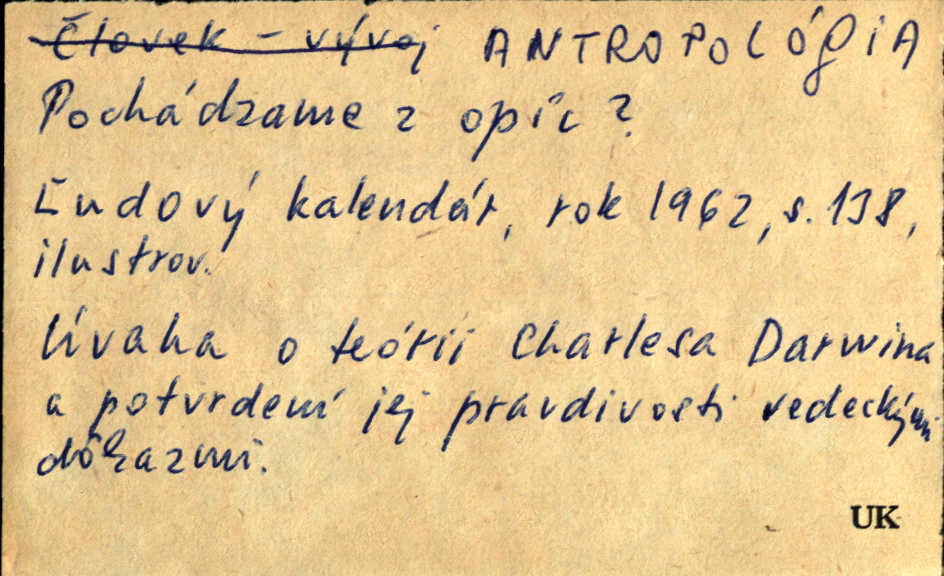 Človek - vývoj ANTROPOLÓGIA
Pochádzame z opíc?
Ľudový kalendár, rok 1962, s. 138,
ilustrov.
Úvaha o teórii Charlesa Darwina
a potvrdení jej pravdivosti vedeckými
dôkazmi.
UK